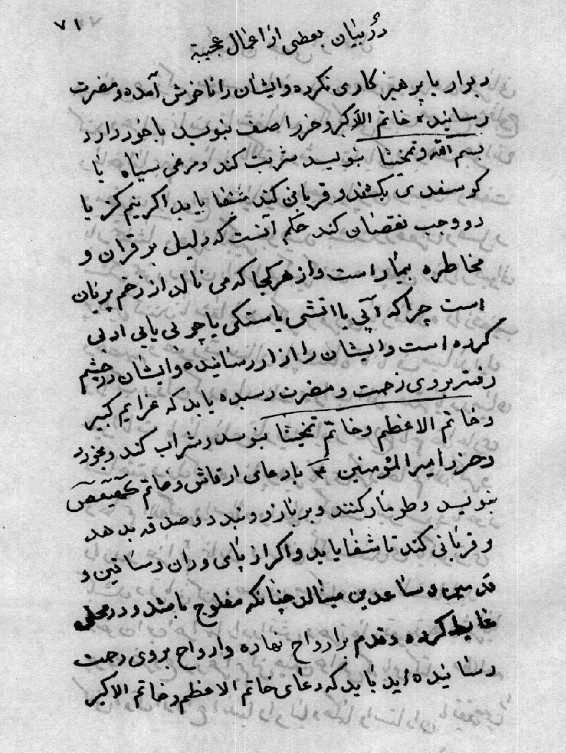 ۷۱
در بیان بعضی از اعمال عجیبة
دیوار یا پرهیز کاری نکرده و ایشان را ناخوش آمده و مضرت
رسانیده خاتم الاکبر و حرز اصف بنوید با خود دارد
بسم الله و تمخیثا بنوید شربت کند و مرغی سیاه یا
کوسفندی بکشد و قربانی کند شفا یابد اکر نیم کز یا
دو وجب نقصان کند حکم آنست که دلیل بر قران و
مخاطره بیمار است و از هر کجا که می نالد از زخم پریان
است چرا که آبی یا اتشی یا سنکی یا چوبی یا بی ادبی
کرده است و ایشان را ازار رسانیده و ایشان در خشم
رفته بروی زحمت و مضرت رسیده باید که عزایم کبیر
و خاتم الاعظم و خاتم تمخیثا بنوسد و شراب کند و بخورد
و حرز امیر المؤمنین با دعای ارقاش و خاتم کهیعص
بنوید و طومار کنند و بر بازو بندد و صدقه بدهد
و قربانی کند تا شفا یابد و اکر از پای و ران و ساقین و
قدمین و ساعدین مینالد چنانکه مفلوج باشد و در محلی
غایط کرده و قدم بر ارواح نهاده و ارواح بروی زحمت
رسانیده اید باید که دعای خاتم الاعظم و خاتم الاکبر